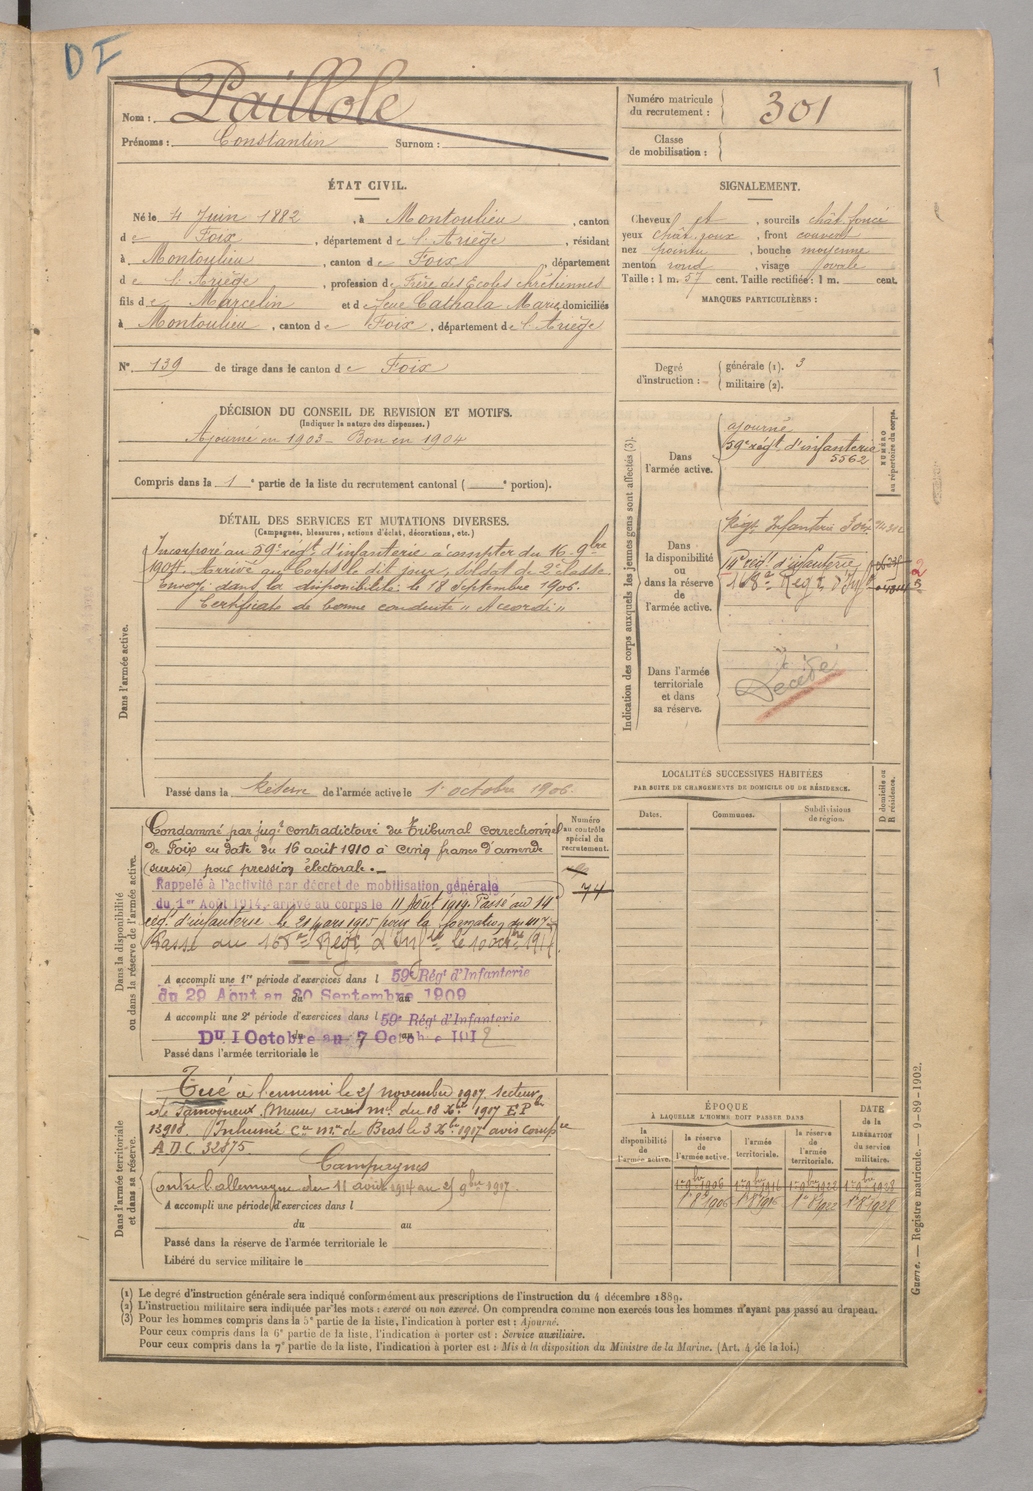 D I
1
Nom : Paillole
Prénoms : Constantin Surnom :
Numéro matricule du recrutement : 301
Classe de mobilisation :
ÉTAT CIVIL.
Né le 4 Juin 1882, à Montoulieu, canton
de Foix, département de l'Ariège, résidant
à Montoulieu, canton de Foix, département
de l'Ariège, profession de Frère des Ecoles chrétiennes
fils de Marcelin et de feue Cathala Marie domiciliés
à Montoulieu, canton de Foix, département de l'Ariège
N° 139 de tirage dans le canton de Foix
SIGNALEMENT.
Cheveux et, sourcils chât. foncé
yeux chât. roux, front couvert
nez pointu, bouche moyenne
menton rond, visage ovale
Taille : 1 m. 57 cent. Taille rectifiée : 1 m. cent.
MARQUES PARTICULIÈRES :
Degré d'instruction : générale (1). 3
militaire (2).
DÉCISION DU CONSEIL DE REVISION ET MOTIFS.
(Indiquer la nature des dispenses.)
Ajourné en 1903 - Bon en 1904
Compris dans la 1e partie de la liste du recrutement cantonal ( e portion).
DÉTAIL DES SERVICES ET MUTATIONS DIVERSES.
(Campagnes, blessures, actions d'éclat, décorations, etc.)
Dans l'armée active.
Incorporé au 59e régt d'infanterie à compter du 16 9bre
1904. Arrivé au Corps le dit jour, soldat de 2e classe
Envoyé dans la disponibilité le 18 Septembre 1906.
Certificat de bonne conduite "Accordé"
Passé dans la Réserve de l'armée active le 1er octobre 1906.
Indication des corps auxquels les jeunes gens sont affectés (3).
NUMÉRO au répertoire du corps.
Dans l'armée active.
ajourné
59e régt d'infanterie
5562
Dans la disponibilité ou dans la réserve de l'armée active.
Régt Infanterie Foix
14e régt d'infanterie
168e Regt d'Inf
Dans l'armée territoriale et dans sa réserve.
Décédé
LOCALITÉS SUCCESSIVES HABITÉES
PAR SUITE DE CHANGEMENTS DE DOMICILE OU DE RÉSIDENCE.
Dates. Communes. Subdivisions de région. D domicile ou R résidence.
Dans la disponibilité ou dans la réserve de l'armée active.
Numéro au contrôle spécial du recrutement.
74
Condamné par jugt contradictoire du Tribunal correctionnel
de Foix en date du 16 août 1910 à cinq francs d'amende
(sursis) pour pression électorale.
Rappelé à l'activité par décret de mobilisation générale
du 1er Août 1914, arrivé au corps le 11 Août 1914. Passé au 14e
régt d'infanterie le 21 mars 1915 pour la formation du 417e
Passé au 168e Régt d'Infie le 10 octbre 1917
A accompli une 1re période d'exercices dans l 59e Régt d'Infanterie
du 29 Aout au 20 Septembre 1909
A accompli une 2e période d'exercices dans l 59e Régt d'Infanterie
Du 1 Octobre au 7 Octobre 1912
Passé dans l'armée territoriale le
Dans l'armée territoriale et dans sa réserve.
Tué à l'ennemi le 25 novembre 1917 secteur
de Samogneux, Meuse
du 18 Xbre 1917
13918. Inhumé de Bras le 3 Xbre 1917 avis
A.D.C. 32875
Campagnes
Contre l'allemagne du 11 août 1914 au 25 9bre 1917.
A accompli une période d'exercices dans l
du au
Passé dans la réserve de l'armée territoriale le
Libéré du service militaire le
ÉPOQUE
À LAQUELLE L'HOMME DOIT PASSER DANS
la disponibilité de l'armée active. la réserve de l'armée active. l'armée territoriale. la réserve de l'armée territoriale.
DATE de la LIBÉRATION du service militaire.
1er 9bre 1906 1er 9bre 1916 1er 9bre 1922 1er 9bre 1928
1er 8bre 1906 1er 8bre 1916 1er 8bre 1922 1er 8bre 1928
(1) Le degré d'instruction générale sera indiqué conformément aux prescriptions de l'instruction du 4 décembre 1889.
(2) L'instruction militaire sera indiquée par les mots : exercé ou non exercé. On comprendra comme non exercés tous les hommes n'ayant pas passé au drapeau.
(3) Pour les hommes compris dans la 5e partie de la liste, l'indication à porter est : Ajourné.
Pour ceux compris dans la 6e partie de la liste, l'indication à porter est : Service auxiliaire.
Pour ceux compris dans la 7e partie de la liste, l'indication à porter est : Mis à la disposition du Ministre de la Marine. (Art. 4 de la loi.)
Guerre. — Registre matricule. — 9-89-1902.